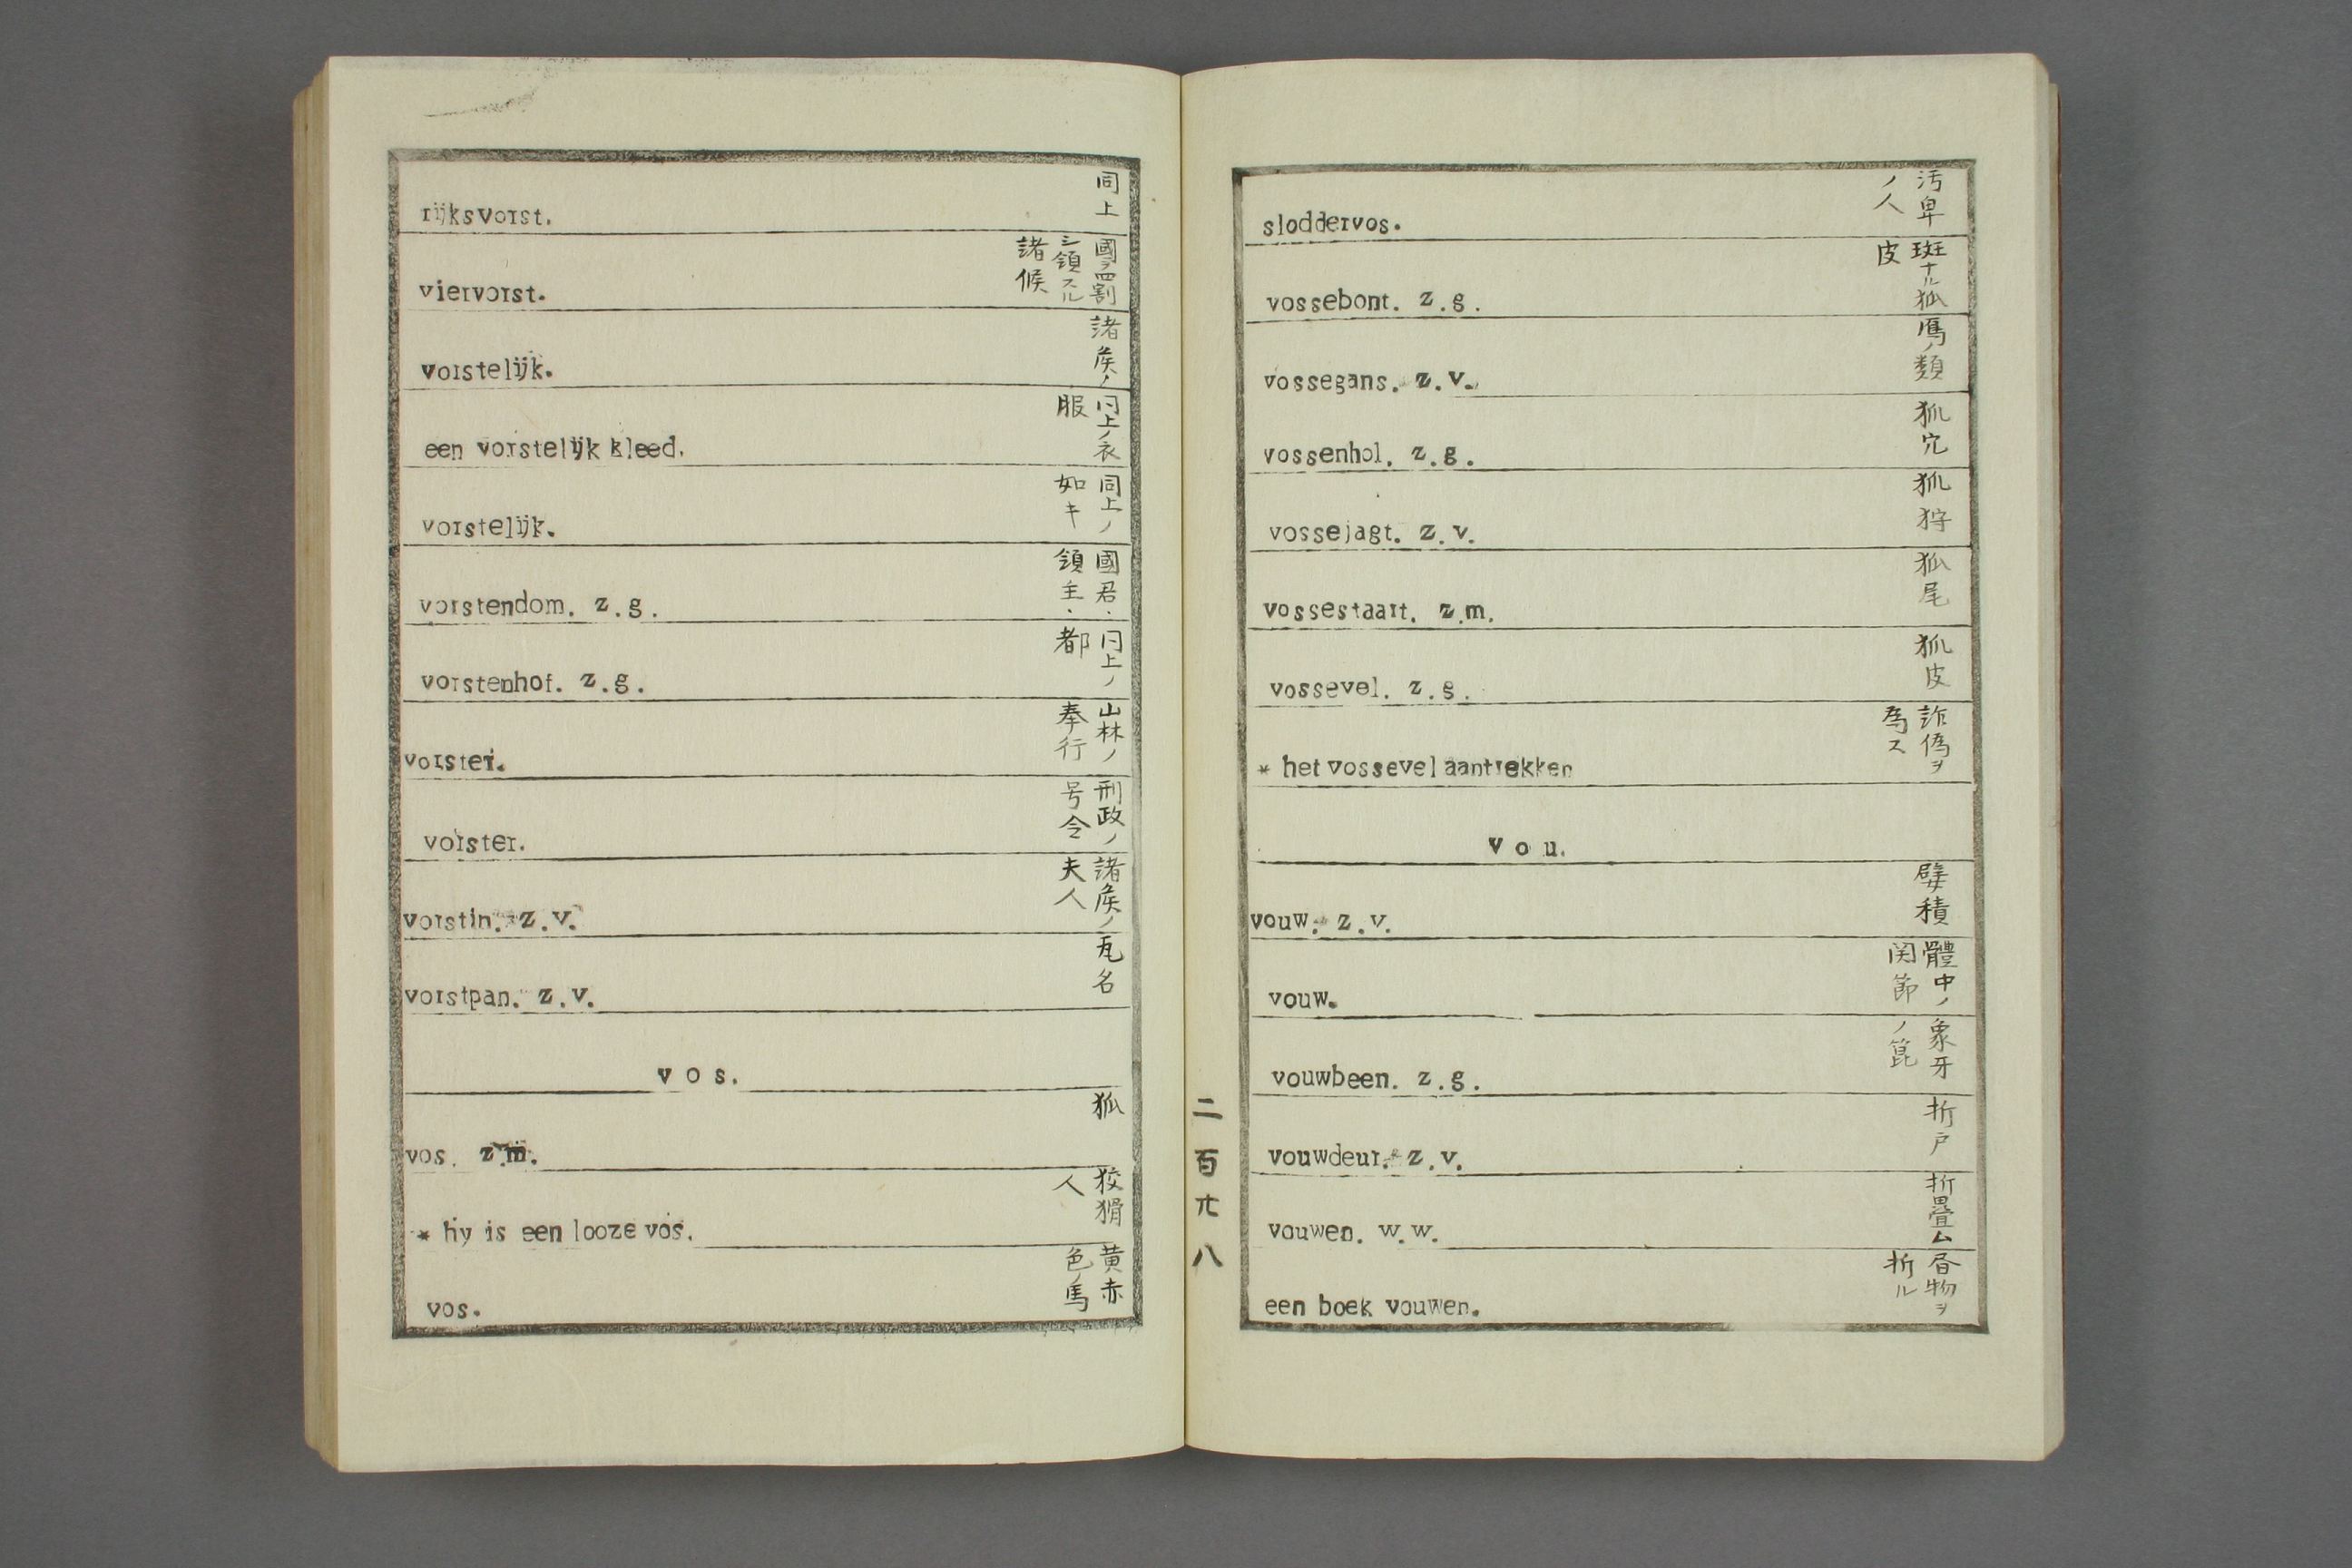 rijksvorst.
同上
viervorst.
國ヲ四割シ領スル諸候
vorstelijk.
諸矦ノ
een vorstelijk kleed.
同上ノ衣服
vorstelijk.
同上ノ如キ
vorstendom. z.g.
國君.領主.
vorstenhof. z.g.
同上ノ都
vorster.
山林ノ奉行
vorster.
刑政ノ号令
vorstin. z.v.
諸矦ノ夫人
vorstpan. z.v.
瓦名
vos.
vos. z.m.
狐
* hy is een looze vos.
狡猾人
vos.
黄赤色ノ馬
二百六八
sloddervos.
汚卑ノ人
vossebont. z.g.
斑ナル狐皮
vossegans. z.v.
鴈ノ類
vossenhol. z.g.
狐穴
vossejagt. z.v.
狐狩
vossestaart. z.m.
狐尾
vossevel. z.g.
狐皮
* het vossevel aantrekken
詐偽ヲ為ス
vou.
vouw. z.v.
襞積
vouw.
體中ノ関節
vouwbeen. z.g.
象牙ノ箆
vouwdeur. z.v.
折戸
vouwen. w.w.
折畳ム
een boek vouwen.
物ヲ折ル